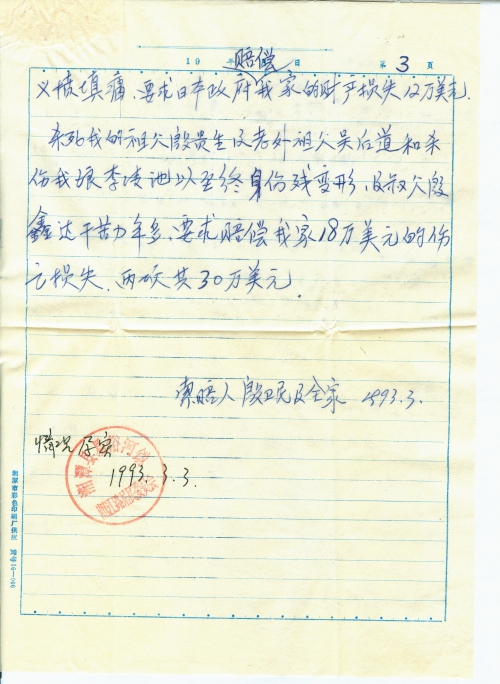 19 年 日 第 3 页
赔偿
义愤填痛、要求日本政府我家的财产损失12万美元.
杀死我的祖父殷贵生及老外祖父吴后道和杀
伤我娘李凌池以至终身伤残变形、及叔父殷
鑫达干劫年多、要求赔偿我家18万美元的伤
亡损失、两项共30万美元.
索赔人 殷卫民及全家 1993.3.
情况属实
1993.3.3.
湘潭市彩色印刷厂供应